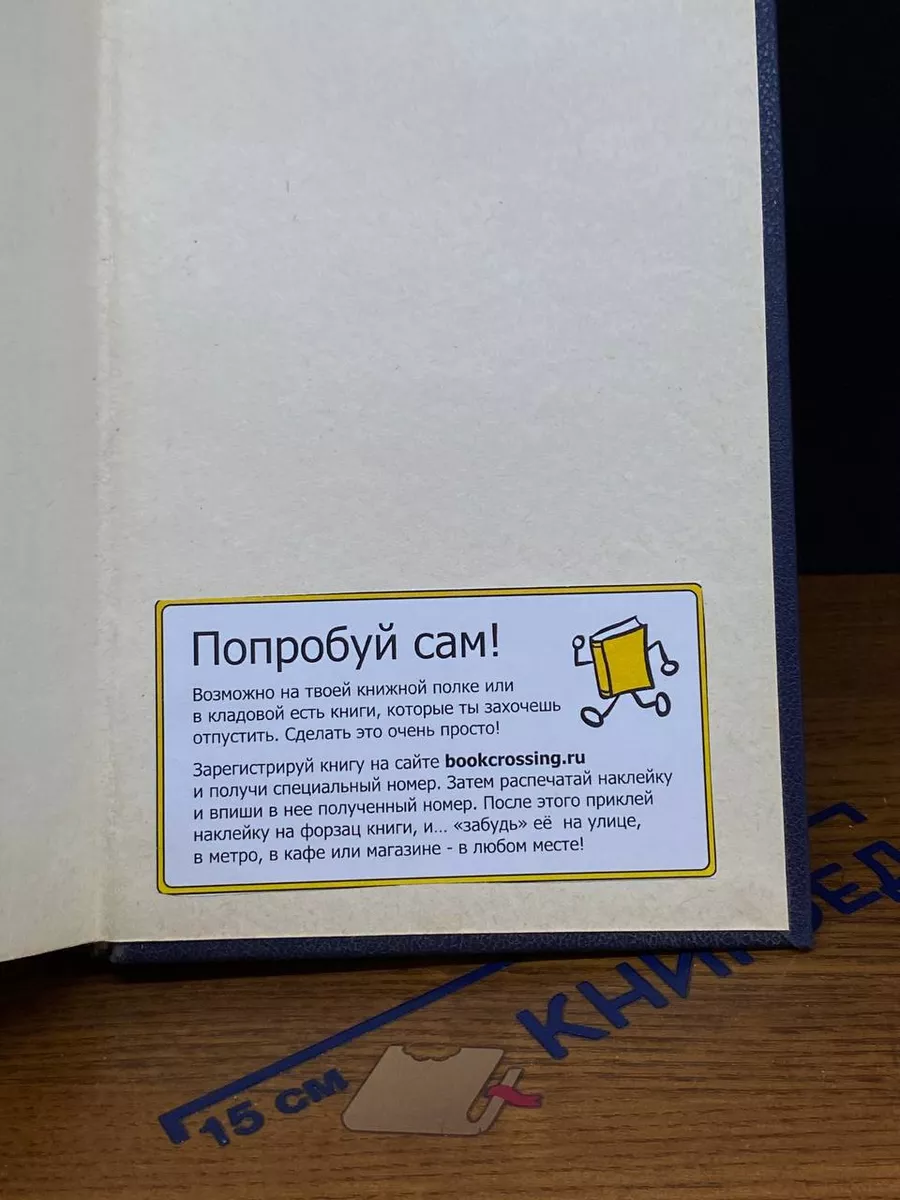 Попробуй сам!
Возможно на твоей книжной полке или
в кладовой есть книги, которые ты захочешь
отпустить. Сделать это очень просто!
Зарегистрируй книгу на сайте bookcrossing.ru
и получи специальный номер. Затем распечатай наклейку
и впиши в нее полученный номер. После этого приклей
наклейку на форзац книги, и... «забудь» её на улице,
в метро, в кафе или магазине - в любом месте!
15 см